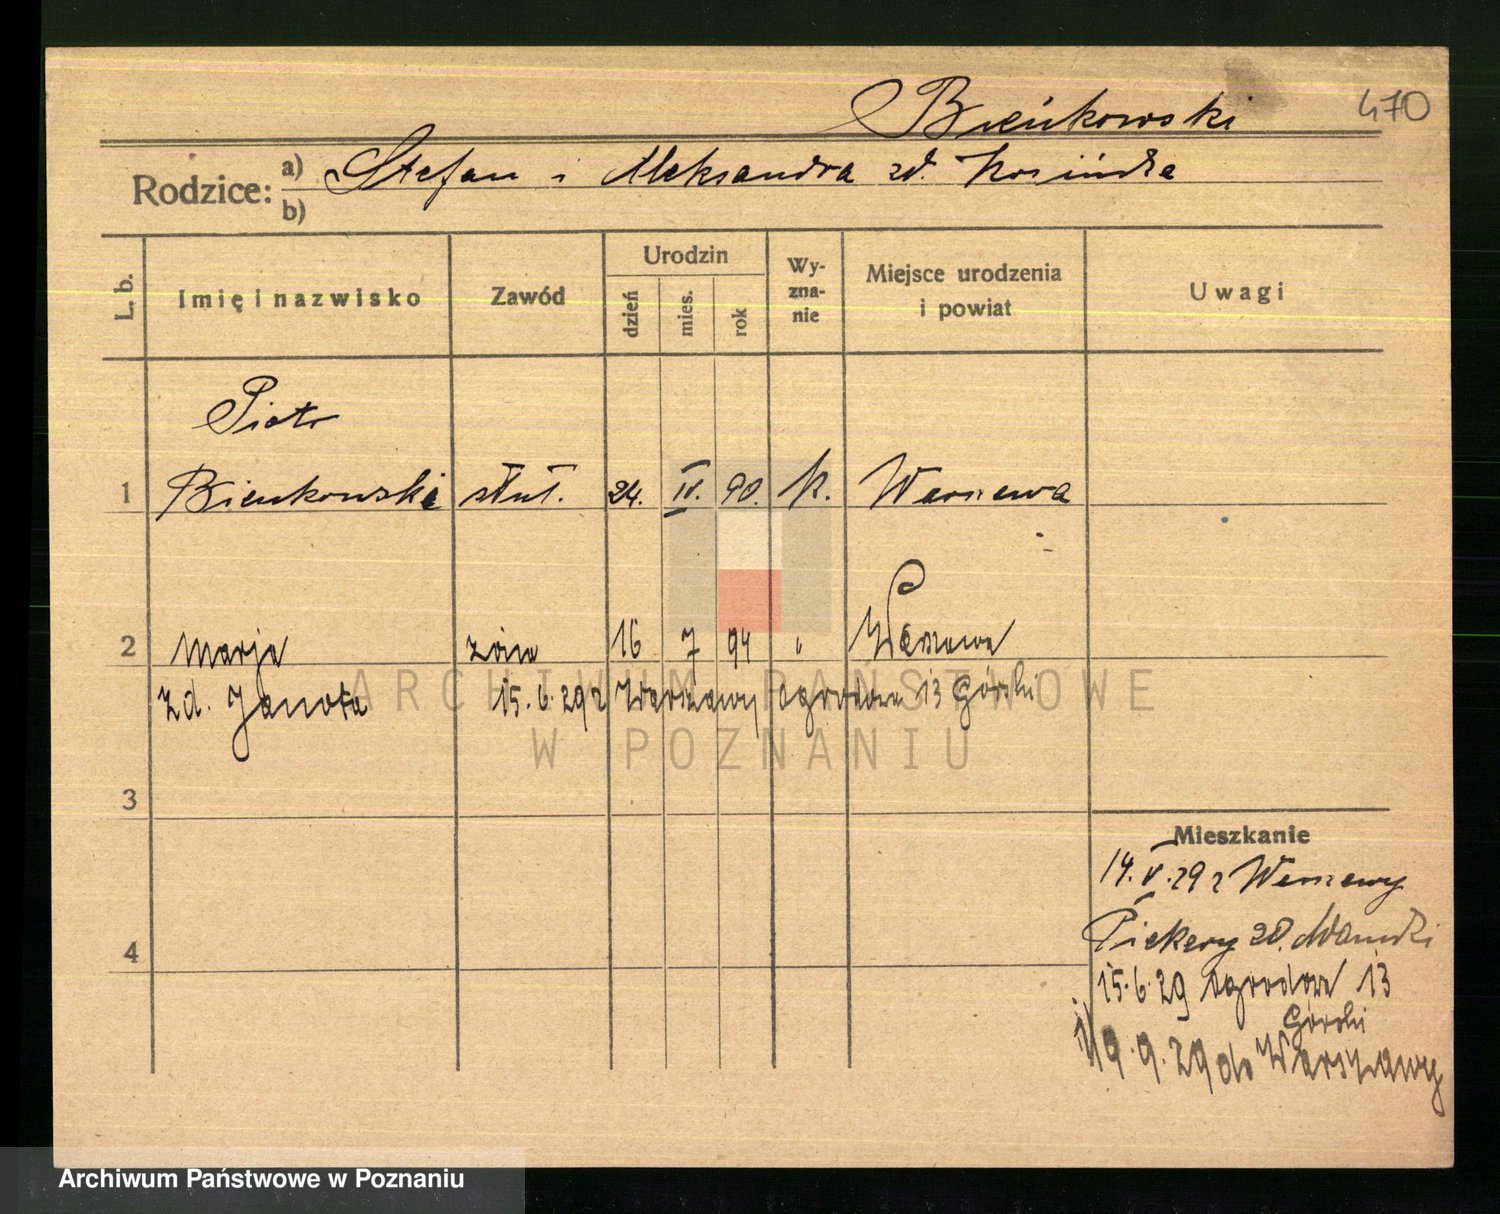 470
Bieńkowski
Rodzice: a) Stefan i Aleksandra zd. Kosińska
b)
L. b. Imię i nazwisko Zawód Urodzin dzień mies. rok Wyzna-nie Miejsce urodzenia i powiat Uwagi
Piotr
1 Bienkowski 24. IV. 90. k. Warszawa
2 Marja żona 16 7 94 " Warszawa
zd. Janota 15.6.29 z Warszawy Ogrodowa 13 Górski
3
4
Mieszkanie
14.V.29 z Warszawy
Piekary 20.
15.6.29 Ogrodowa 13
Górski
19.9.29 do Warszawy
ARCHIWUM PAŃSTWOWE
W POZNANIU
Archiwum Państwowe w Poznaniu